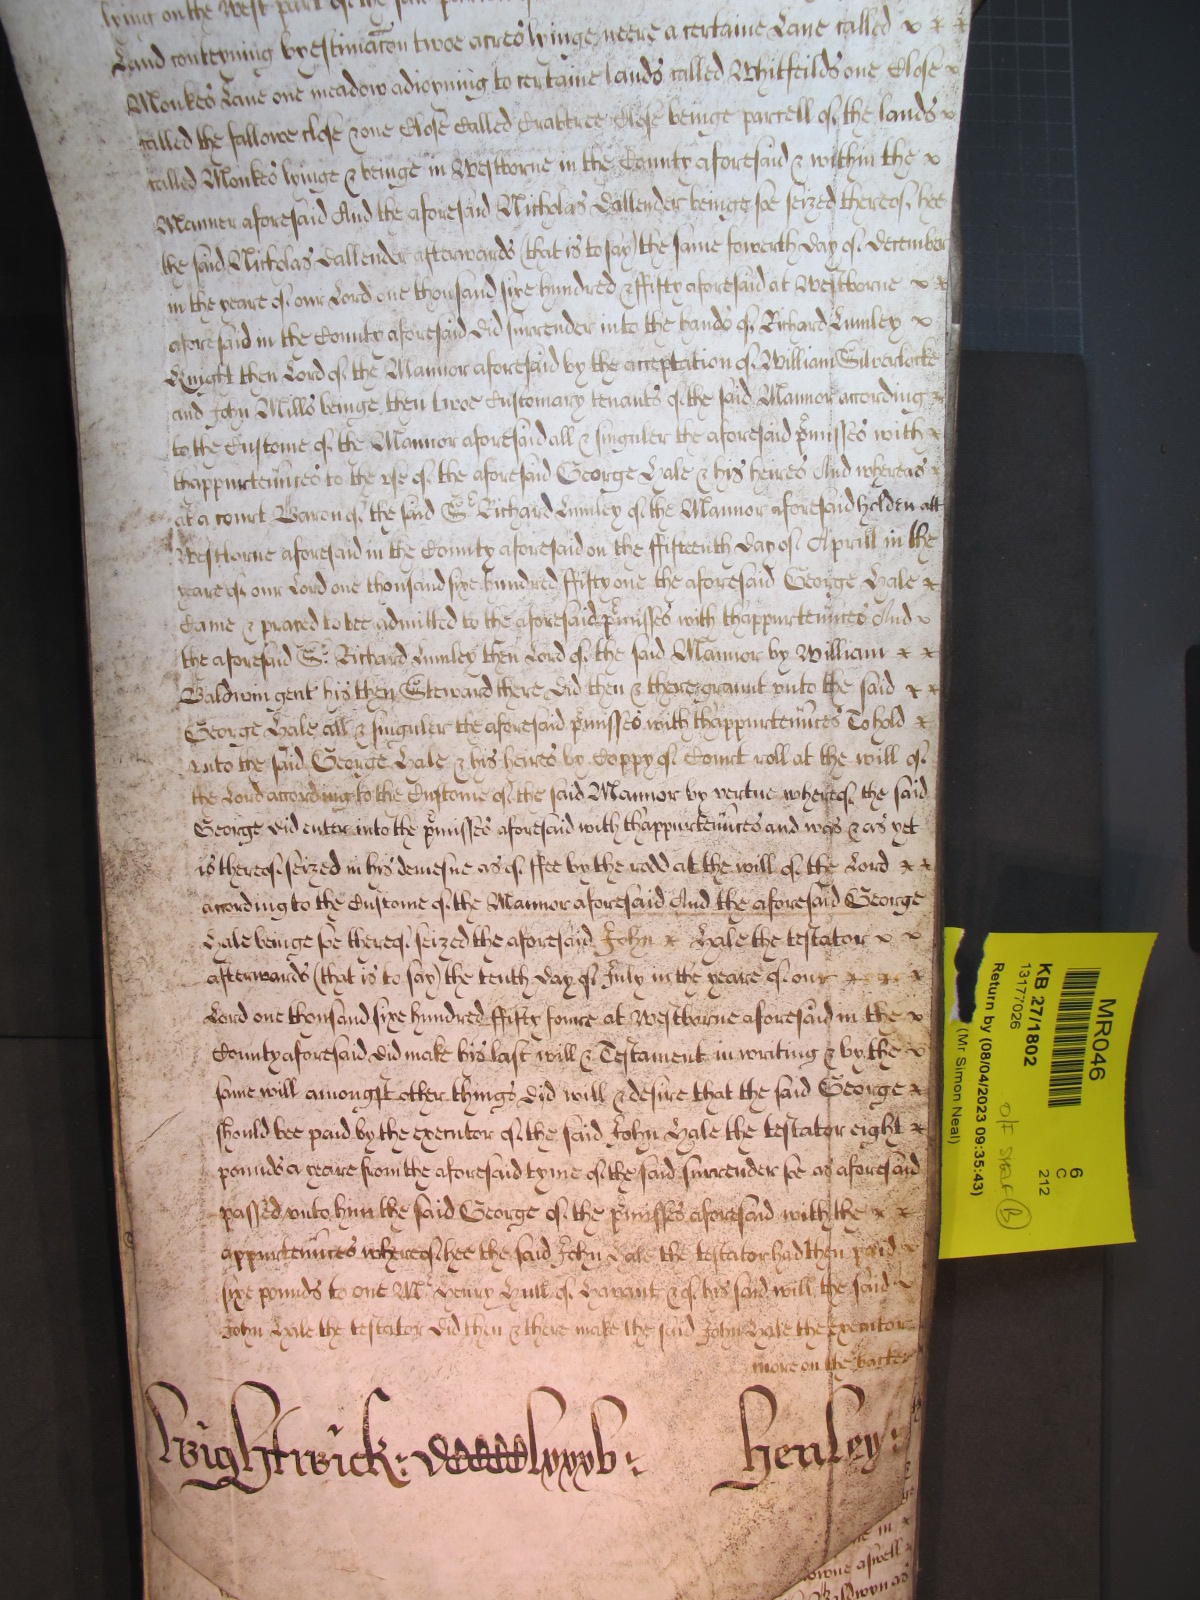 lying on the West part of the same
Land conteyning by estimacon twoe acres lyinge neere a certaine Lane called x x x
Monkes Lane one meadow adioyning to certaine lands called Whitfeilds one Close x
called the fallowe close & one Close Called Crabtree Close beinge parcell of the lands x
called Monkes lyinge & beinge in Westborne in the County aforesaid & within the x
Mannor aforesaid And the aforesaid Nicholas Dallender beinge soe seized thereof hee
the said Nicholas Dallender afterwards (that is to say) the same fowerth day of December
in the yeare of our Lord one thousand sixe hundred & ffifty aforesaid at Westborne x x
aforesaid in the County aforesaid did surrender into the hands of Richard Lumley x
Knight then Lord of the Mannor aforesaid by the acceptation of William Silverlocke
and John Mills beinge then twoe Customary tenants of the said Mannor according x
to the Custome of the Mannor aforesaid all & singuler the aforesaid p'misses with x
thappurten'nces to the vse of the aforesaid George Hale & his heires And whereas x
at a court Baron of the said Sr Richard Lumley of the Mannor aforesaid holden att
Westborne aforesaid in the County aforesaid on the ffifteenth day of Aprill in the
yeare of our Lord one thousand sixe hundred ffifty one the aforesaid George Hale x
Came & prayed to bee admitted to the aforesaid p'misses with thappurten'nces And x
the aforesaid Sr Richard Lumley then Lord of the said Mannor by William x x
Baldwin gent his then Steward there did then & there graunt vnto the said x x
George Hale all & singuler the aforesaid p'misses with thappurten'nces To hold x
vnto the said George Hale & his heires by Coppy of Court roll at the will of
the Lord according to the Custome of the said Mannor by vertue whereof the said
George did enter into the p'misses aforesaid with thappurten'nces and was & as yet
is thereof seized in his demesne as of ffee by the rodd at the will of the Lord x x
according to the Custome of the Mannor aforesaid And the aforesaid George
Hale beinge soe thereof seized the aforesaid John x Hale the testator x x
afterwards (that is to say) the tenth day of July in the yeare of our x x x x
Lord one thousand sixe hundred ffifty foure at Westborne aforesaid in the x
County aforesaid did make his last will & Testament in writing & by the x
same will amongst other things did will & desire that the said George x
should bee paid by the executor of the said John Hale the testator eight x
pounds a yeare from the aforesaid tyme of the said surrender soe as aforesaid
passed vnto him the said George of the p'misses aforesaid with the x x
appurten'nces whereof hee the said John Hale the testator had then paid x
sixe pounds to one Mr Henry Hull of Havant & of his said will the said x
John Hale the testator did then & there make the said John Hale the executor
more on the backe
Wightwick: lxxxv: Henley:
MR046
KB 27/1802
13177026
6
C
212
O/F
B
Return by (08/04/2023 09:35:43)
(Mr Simon Neal)
in
aswell
Baldwyn